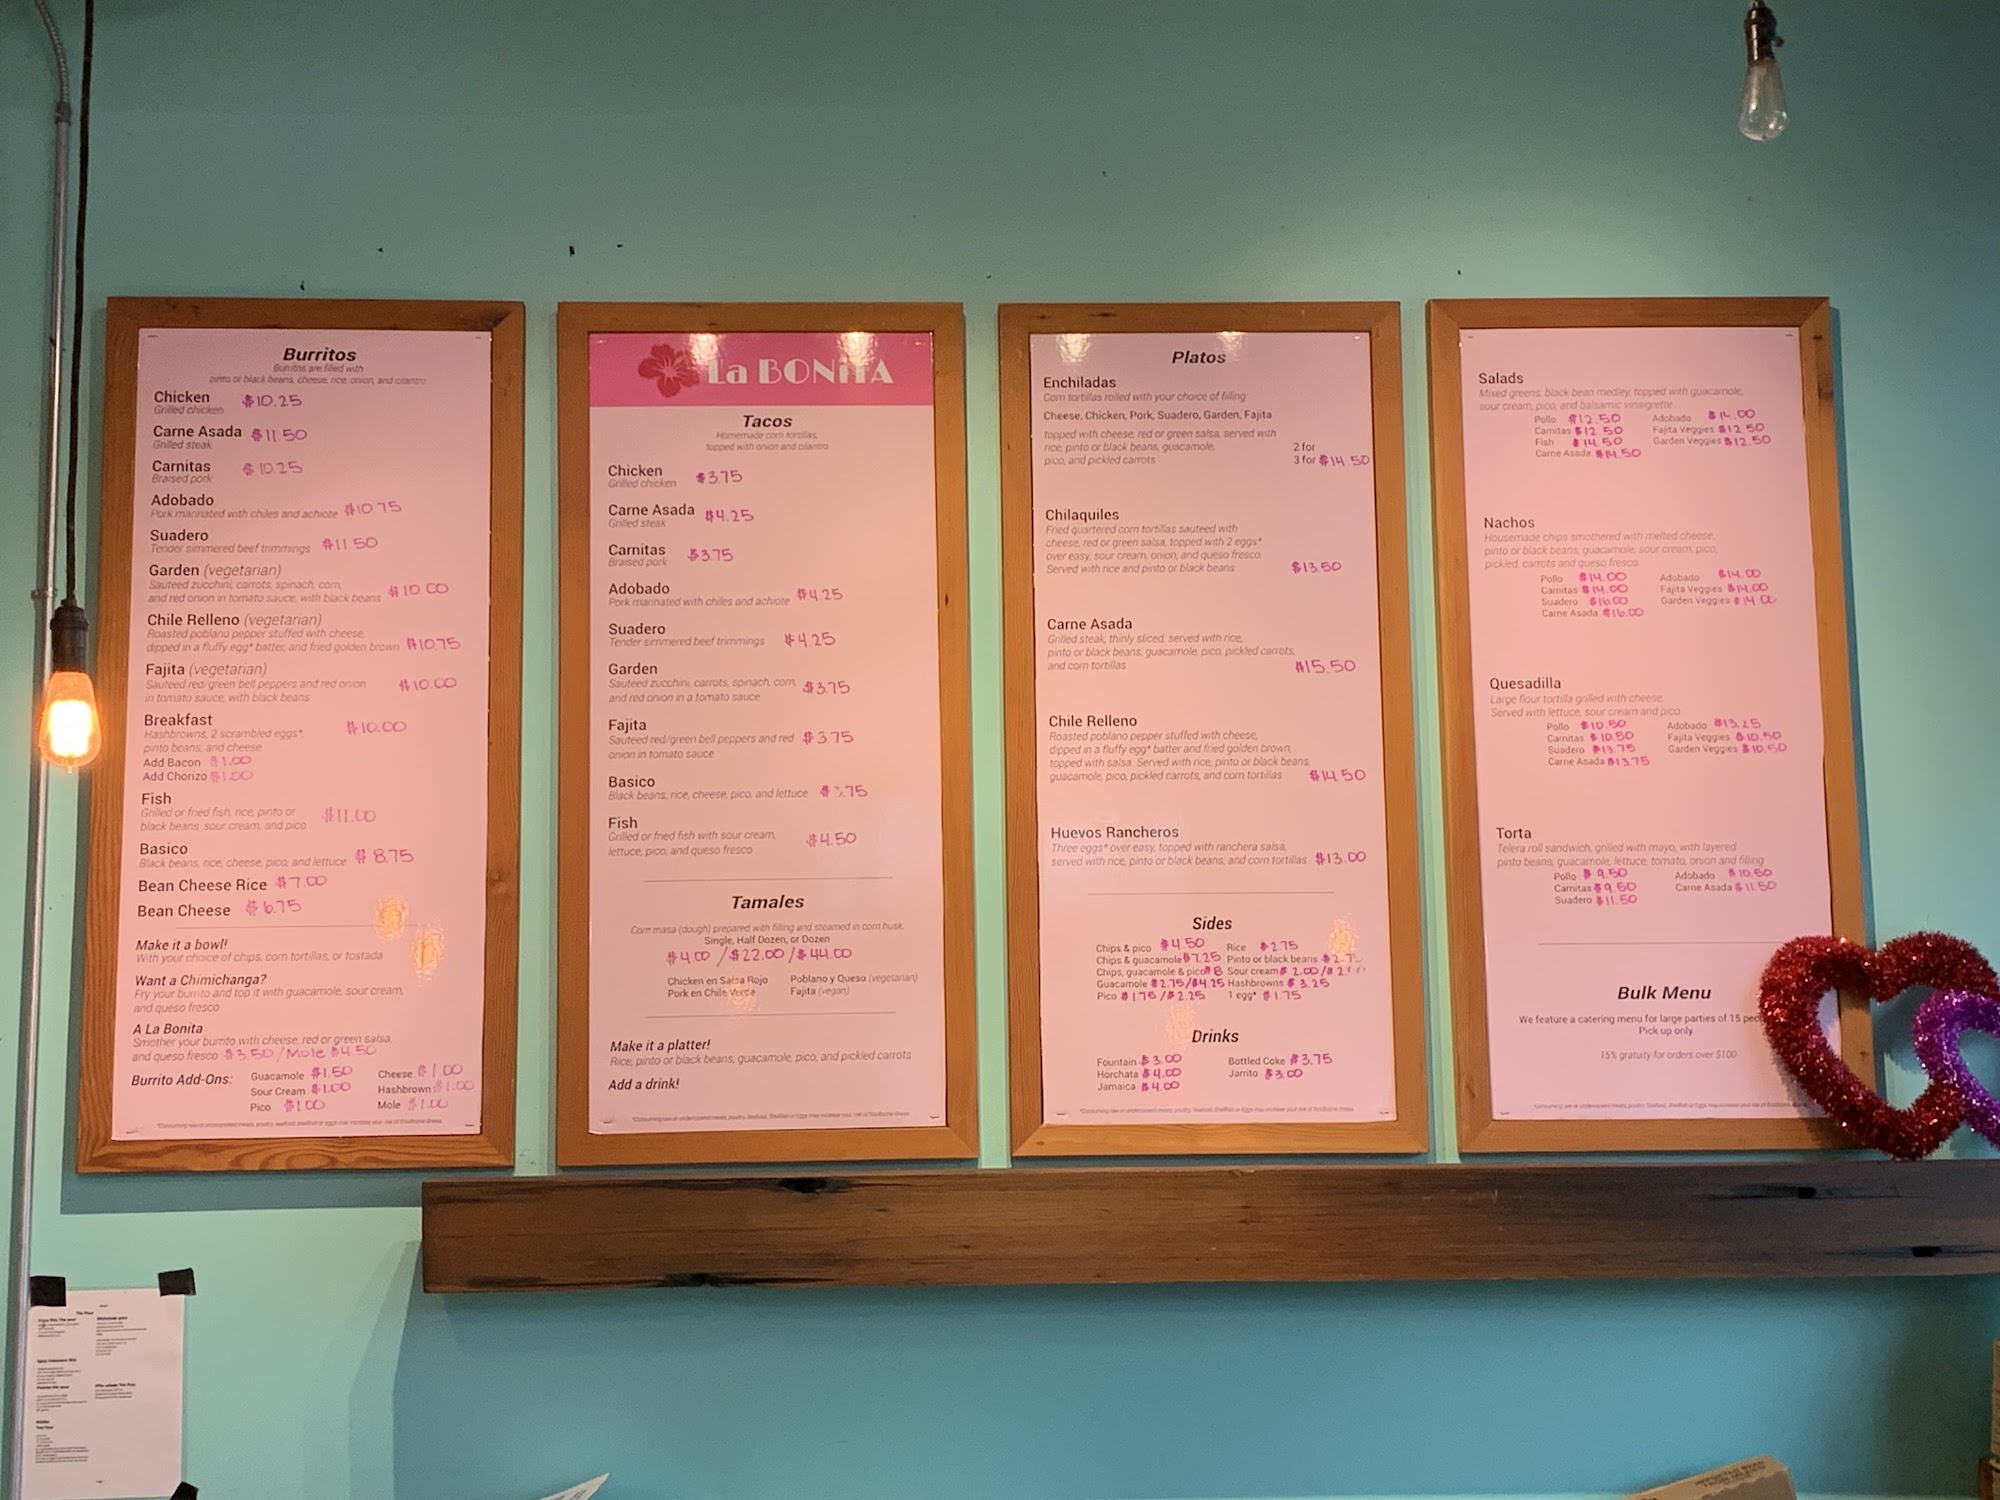 Burritos
Burritos are filled with
pinto or black beans, cheese, rice, onion, and cilantro
Chicken $10.25
Grilled chicken
Carne Asada $11.50
Grilled steak
Carnitas $10.25
Braised pork
Adobado
Pork marinated with chiles and achiote $10.75
Suadero
Tender simmered beef trimmings $11.50
Garden (vegetarian)
Sauteed zucchini, carrots, spinach, corn,
and red onion in tomato sauce, with black beans $10.00
Chile Relleno (vegetarian)
Roasted poblano pepper stuffed with cheese,
dipped in a fluffy egg* batter, and fried golden brown $10.75
Fajita (vegetarian)
Sauteed red/green bell peppers and red onion $10.00
in tomato sauce, with black beans
Breakfast $10.00
Hashbrowns, 2 scrambled eggs*,
pinto beans, and cheese
Add Bacon $1.00
Add Chorizo $1.00
Fish
Grilled or fried fish, rice, pinto or $11.00
black beans, sour cream, and pico
Basico
Black beans, rice, cheese, pico, and lettuce $8.75
Bean Cheese Rice $7.00
Bean Cheese $6.75
Make it a bowl!
With your choice of chips, corn tortillas, or tostada
Want a Chimichanga?
Fry your burrito and top it with guacamole, sour cream,
and queso fresco
A La Bonita
Smother your burrito with cheese, red or green salsa,
and queso fresco $3.50/Mole $4.50
Burrito Add-Ons: Guacamole $1.50 Cheese $1.00
Sour Cream $1.00 Hashbrown $1.00
Pico $1.00 Mole $1.00
*Consuming raw or undercooked meats, poultry, seafood, shellfish or eggs may increase your risk of foodborne illness.
La BONITA
Tacos
Homemade corn tortillas,
topped with onion and cilantro
Chicken
Grilled chicken $3.75
Carne Asada $4.25
Grilled steak
Carnitas $3.75
Braised pork
Adobado
Pork marinated with chiles and achiote $4.25
Suadero
Tender simmered beef trimmings $4.25
Garden
Sauteed zucchini, carrots, spinach, corn, $3.75
and red onion in a tomato sauce
Fajita
Sauteed red/green bell peppers and red $3.75
onion in tomato sauce
Basico
Black beans, rice, cheese, pico, and lettuce
Fish
Grilled or fried fish with sour cream, $4.50
lettuce, pico, and queso fresco
Tamales
Corn masa (dough) prepared with filling and steamed in corn husk.
Single, Half Dozen, or Dozen
$4.00 /$22.00 /$44.00
Chicken en Salsa Rojo Poblano y Queso (vegetarian)
Pork en Chile Verde Fajita (vegan)
Make it a platter!
Rice, pinto or black beans, guacamole, pico, and pickled carrots
Add a drink!
*Consuming raw or undercooked meats, poultry, Seafood, Shellfish or Eggs may increase your risk of foodborne illness.
Platos
Enchiladas
Corn tortillas rolled with your choice of filling:
Cheese, Chicken, Pork, Suadero, Garden, Fajita
topped with cheese, red or green salsa, served with
rice, pinto or black beans, guacamole, 2 for
pico, and pickled carrots 3 for $14.50
Chilaquiles
Fried quartered corn tortillas sauteed with
cheese, red or green salsa, topped with 2 eggs*
over easy, sour cream, onion, and queso fresco.
Served with rice and pinto or black beans $13.50
Carne Asada
Grilled steak, thinly sliced, served with rice,
pinto or black beans, guacamole, pico, pickled carrots,
and corn tortillas $15.50
Chile Relleno
Roasted poblano pepper stuffed with cheese,
dipped in a fluffy egg* batter and fried golden brown,
topped with salsa. Served with rice, pinto or black beans,
guacamole, pico, pickled carrots, and corn tortillas $14.50
Huevos Rancheros
Three eggs* over easy, topped with ranchera salsa,
served with rice, pinto or black beans, and corn tortillas $13.00
Sides
Chips & pico $4.50 Rice $2.75
Chips & guacamole $7.25 Pinto or black beans
Chips, guacamole & pico $8 Sour cream $2.00/
Guacamole $2.75/$4.25 Hashbrowns $3.25
Pico $1.75/$2.25 1 egg* $1.75
Drinks
Fountain $3.00 Bottled Coke $3.75
Horchata $4.00 Jarrito $3.00
Jamaica $4.00
*Consuming raw or undercooked meats, poultry, Seafood, Shellfish or Eggs may increase your risk of foodborne illness.
Salads
Mixed greens, black bean medley, topped with guacamole,
sour cream, pico, and balsamic vinaigrette
Pollo $12.50 Adobado $14.00
Carnitas $12.50 Fajita Veggies $12.50
Fish $14.50 Garden Veggies $12.50
Carne Asada $14.50
Nachos
Housemade chips smothered with melted cheese,
pinto or black beans, guacamole, sour cream, pico,
pickled, carrots and queso fresco
Pollo $14.00 Adobado $14.00
Carnitas $14.00 Fajita Veggies $14.00
Suadero $16.00 Garden Veggies $14.00
Carne Asada $16.00
Quesadilla
Large flour tortilla grilled with cheese.
Served with lettuce, sour cream and pico
Pollo $10.50 Adobado $13.25
Carnitas $10.50 Fajita Veggies $10.50
Suadero $13.75 Garden Veggies $10.50
Carne Asada $13.75
Torta
Telera roll sandwich, grilled with mayo, with layered
pinto beans, guacamole, lettuce, tomato, onion and filling
Pollo $9.50 Adobado $10.50
Carnitas $9.50 Carne Asada $11.50
Suadero $11.50
Bulk Menu
We feature a catering menu for large parties of 15
Pick up only.
15% gratuity for orders over $100